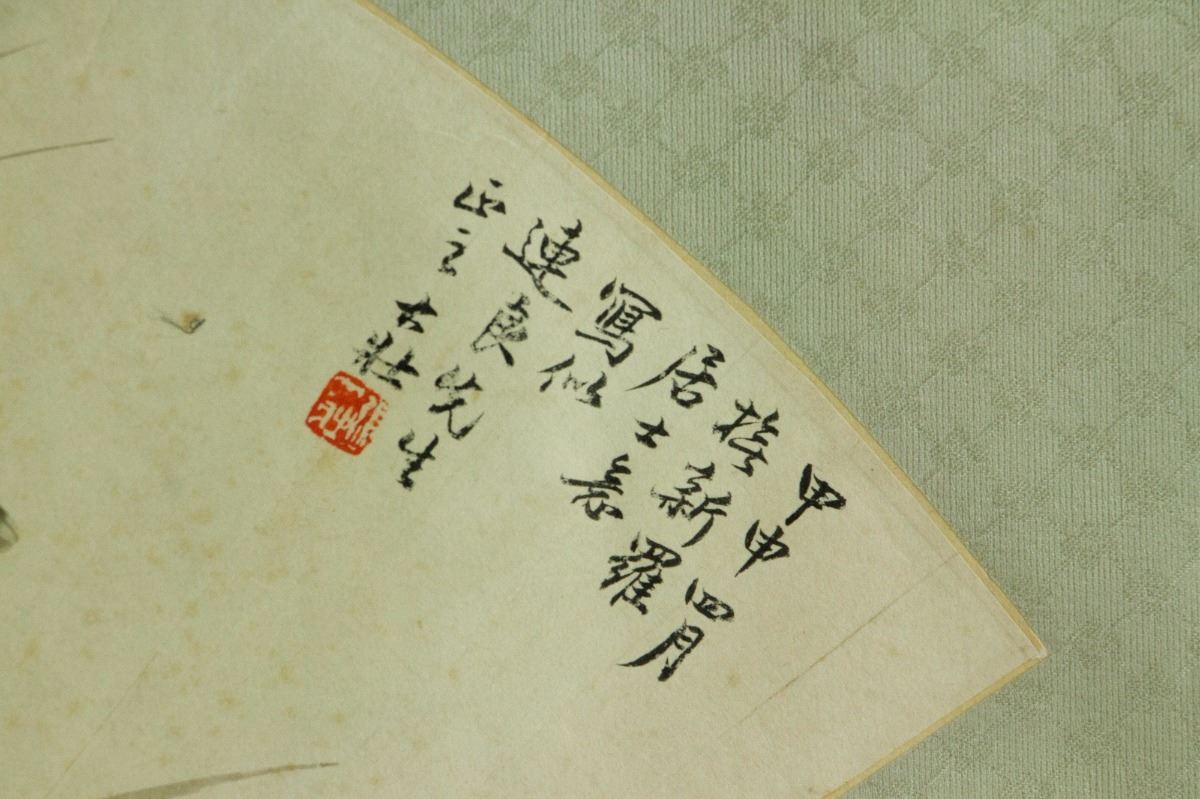 甲申四月
新羅
居士意
寫似
連良先生
正之 大壯